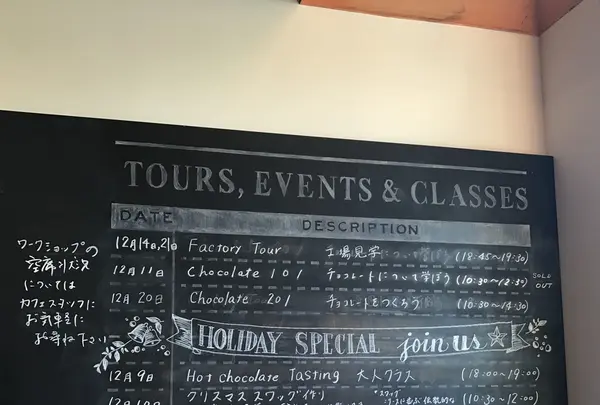 TOURS, EVENTS & CLASSES
DATE DESCRIPTION
12月14日,21日 Factory Tour 工場見学について学ぼう (18:45~19:30)
12月11日 Chocolate 101 チョコレートについて学ぼう (10:30~12:30) SOLD OUT
12月20日 Chocolate 201 チョコレートをつくろう (10:30~14:30)
HOLIDAY SPECIAL join us
12月9日 Hot chocolate Tasting 大人クラス (18:00~19:00)
クリスマススワッグ作り (10:30~12:00)
ワークショップの
空席状況
については
カフェスタッフに
お気軽に
お尋ね下さい